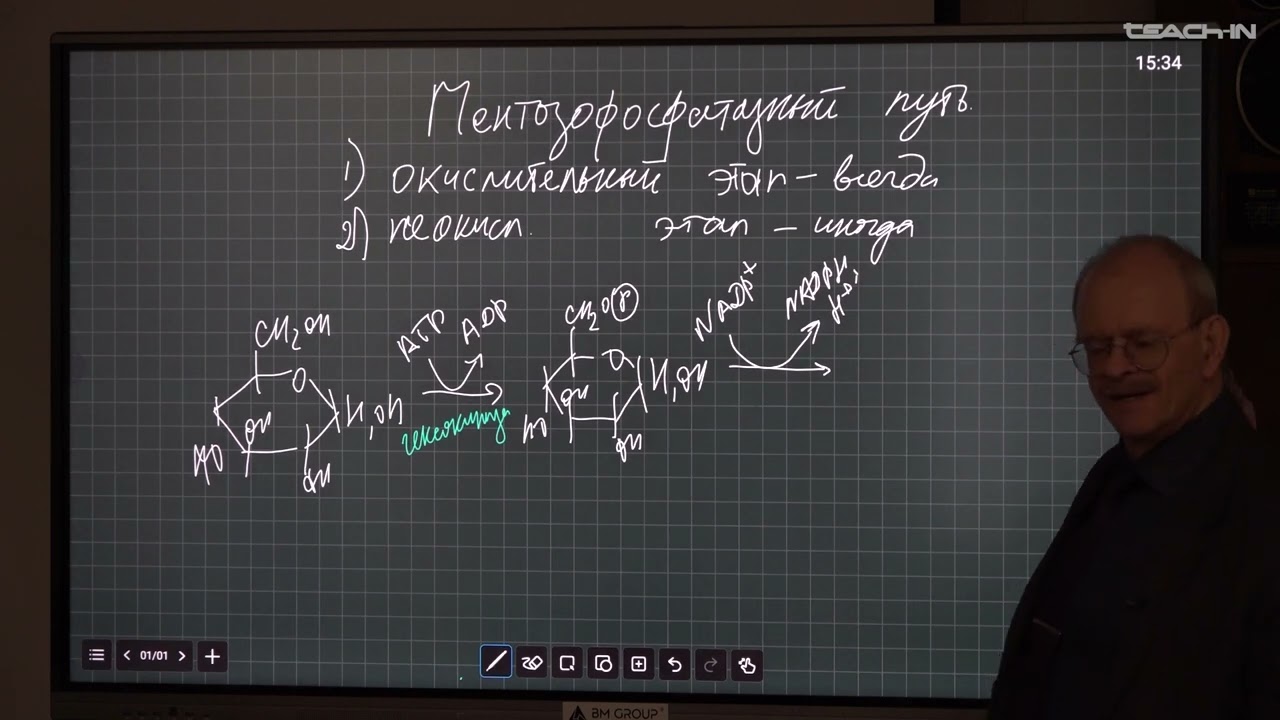 TEACH-IN
15:34
Пентозофосфатазный путь.
1) окислительный этап – всегда
2) неокисл. этап – иногда
CH₂OH
O
OH
HO
OH
H, OH
ATP ADP
гексокиназа
CH₂O(P)
O
OH
HO
OH
H, OH
NADP⁺ NADPH, H⁺
01/01
BM GROUP